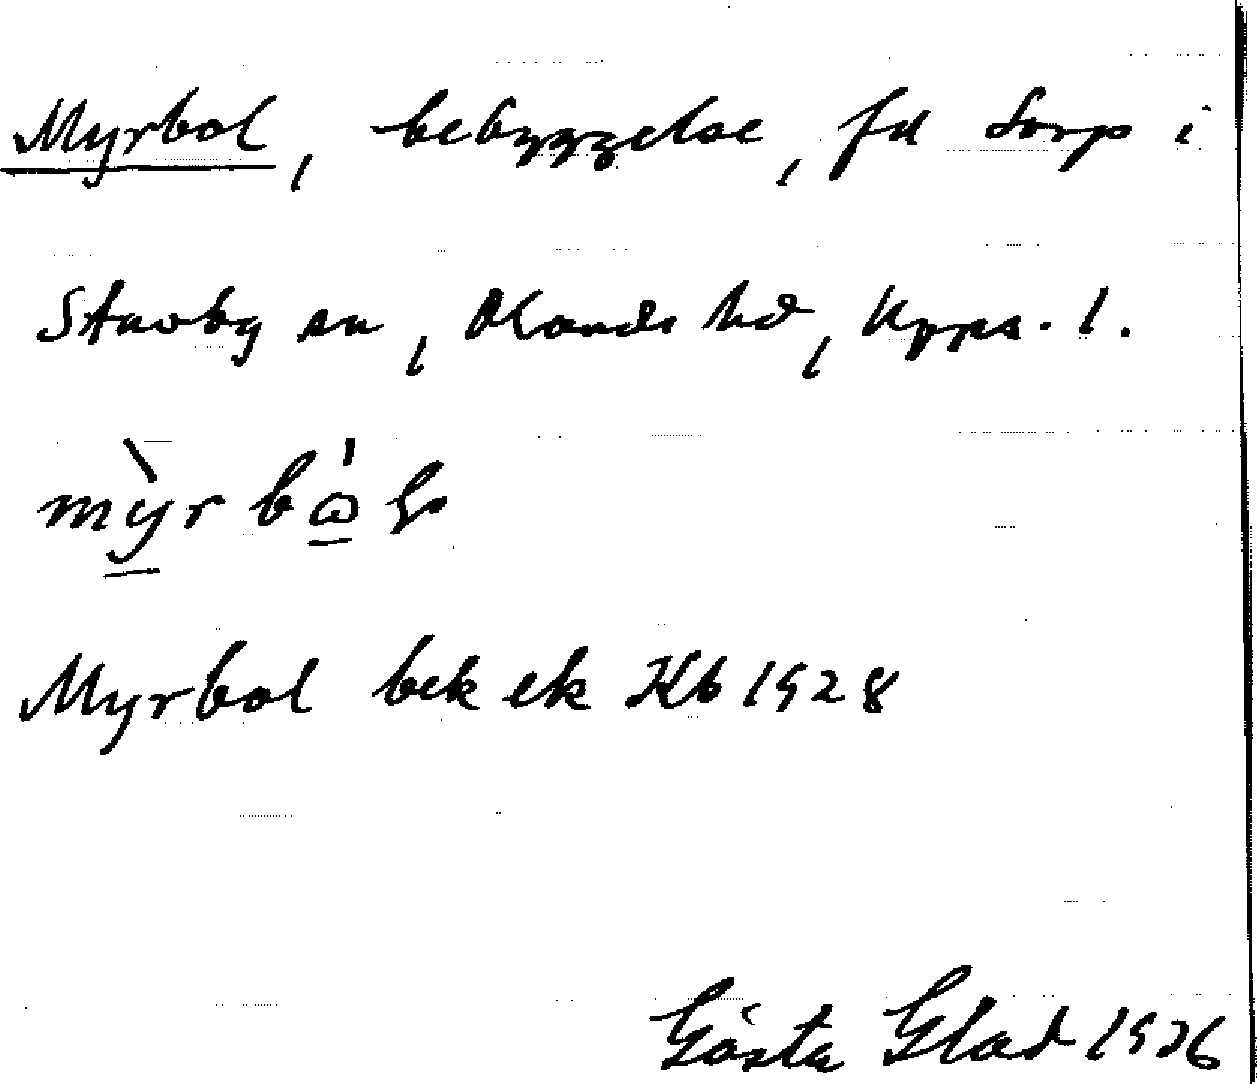 Myrbol, bebyggelse, fd torp i
Stavby sn, Olands hd, Upps. l.
Myrbol bek ek Kb 1928
Gösta Glad